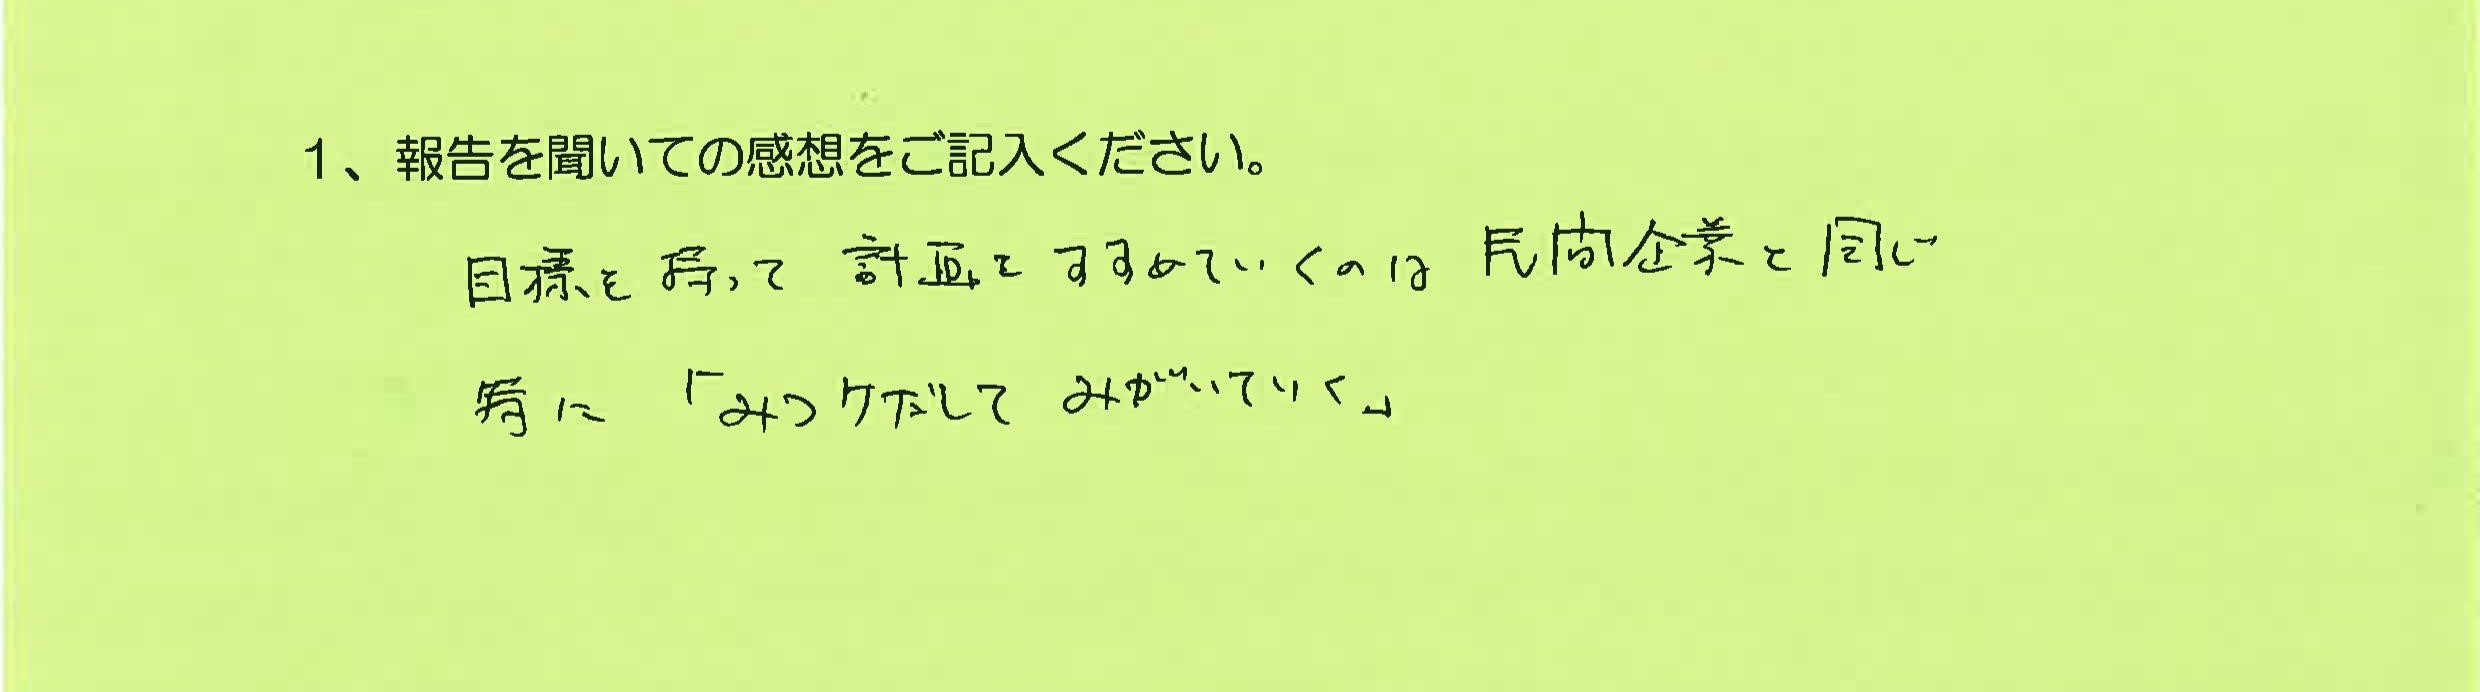 1、報告を聞いての感想をご記入ください。
目標を持って 計画をすすめていくのは 民間企業と同じ
常に 「みつけだして みがいていく」